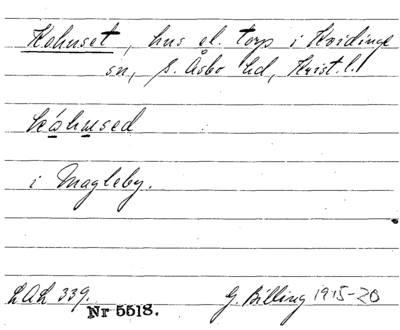 Kohuset, hus el. torp i Kvidinge
sn, S. Åsbo hd, Krist. l.
kóhused
i Magleby.
LAL 339. Nr 5518. G. Billing 1915-20